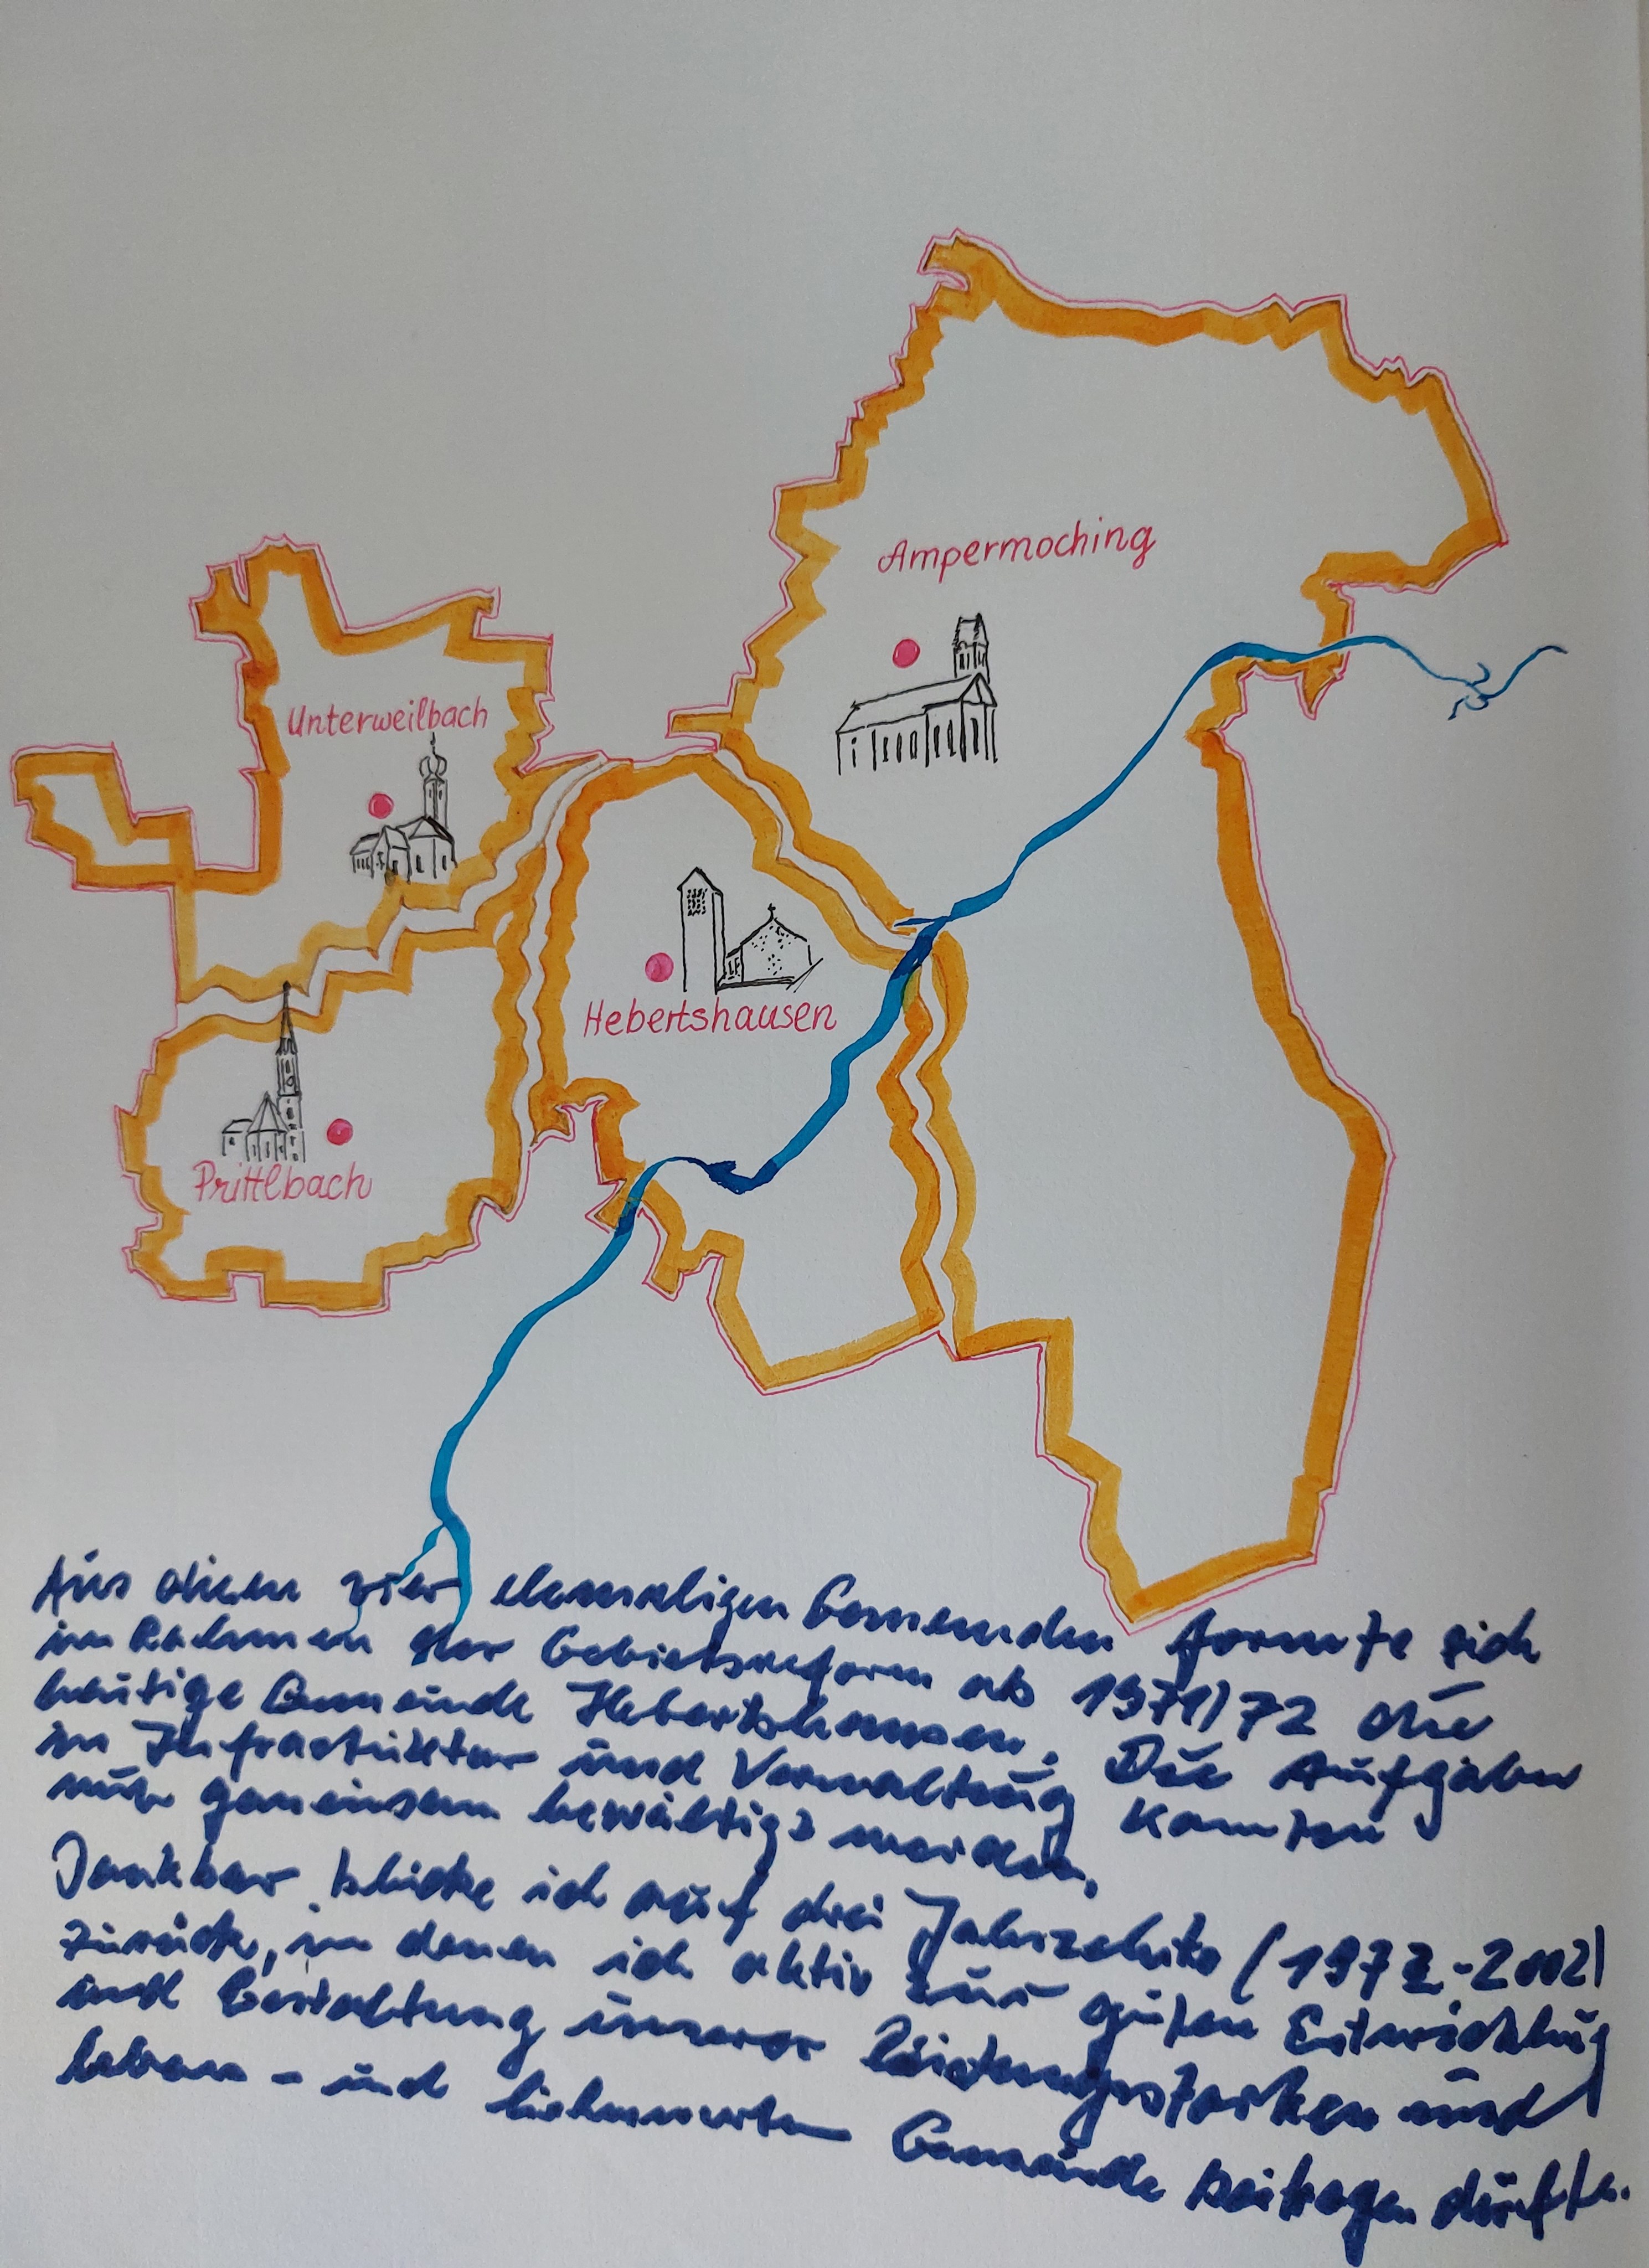 Ampermoching
Unterweilbach
Hebertshausen
Prittlbach
Aus diesen vier ehemaligen Gemeinden formte sich
im Rahmen der Gebietsreform ab 1971/72 die
heutige Gemeinde Hebertshausen. Die Aufgaben
in Infrastruktur und Verwaltung konnten
nur gemeinsam bewältigt werden.
Dankbar blicke ich auf drei Jahrzehnte (1972-2002)
zurück, in denen ich aktiv zur guten Entwicklung
und Gestaltung unserer leistungsstarken und
lebens- und liebenswerten Gemeinde beitragen durfte.